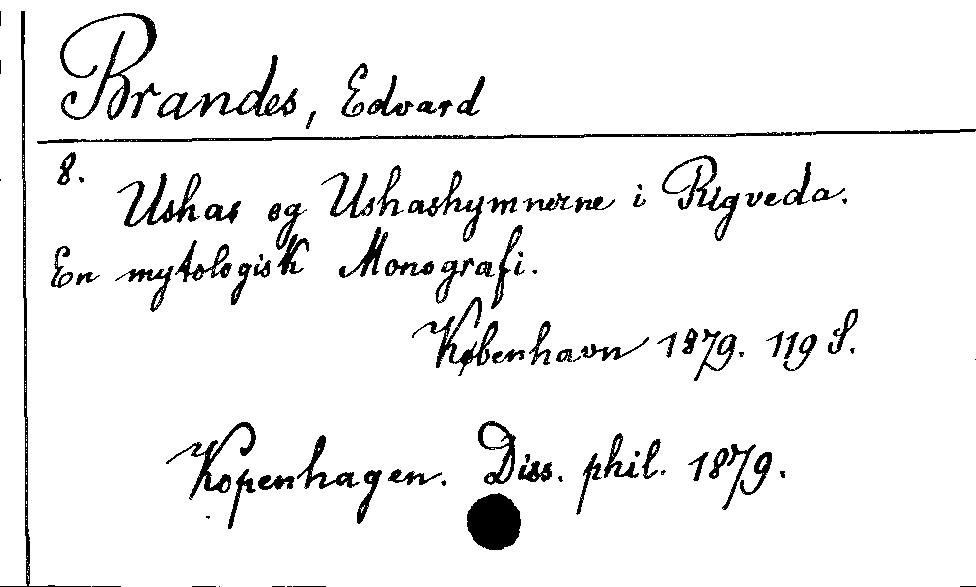 Brandes, Edvard
8.
Ushas og Ushashymnerne i Rigveda.
En mytologisk Monografi.
København 1879. 119 S.
Kopenhagen. Diss. phil. 1879.